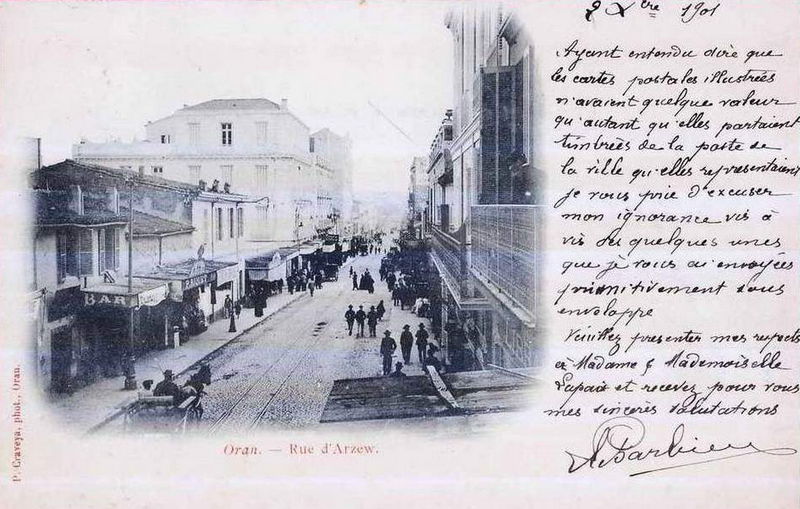 BAR
Oran. — Rue d'Arzew.
P. Graveya, phot., Oran.
2 Xbre 1901
Ayant entendu dire que
les cartes postales illustrées
n'avaient quelque valeur
qu'autant qu'elles partaient
timbrées de la poste de
la ville qu'elles représentaient
je vous prie d'excuser
mon ignorance vis à
vis des quelques unes
que je vous ai envoyées
primitivement sous
enveloppe
Veuillez présenter mes respects
à Madame & Mademoiselle
et recevez pour vous
mes sincères salutations